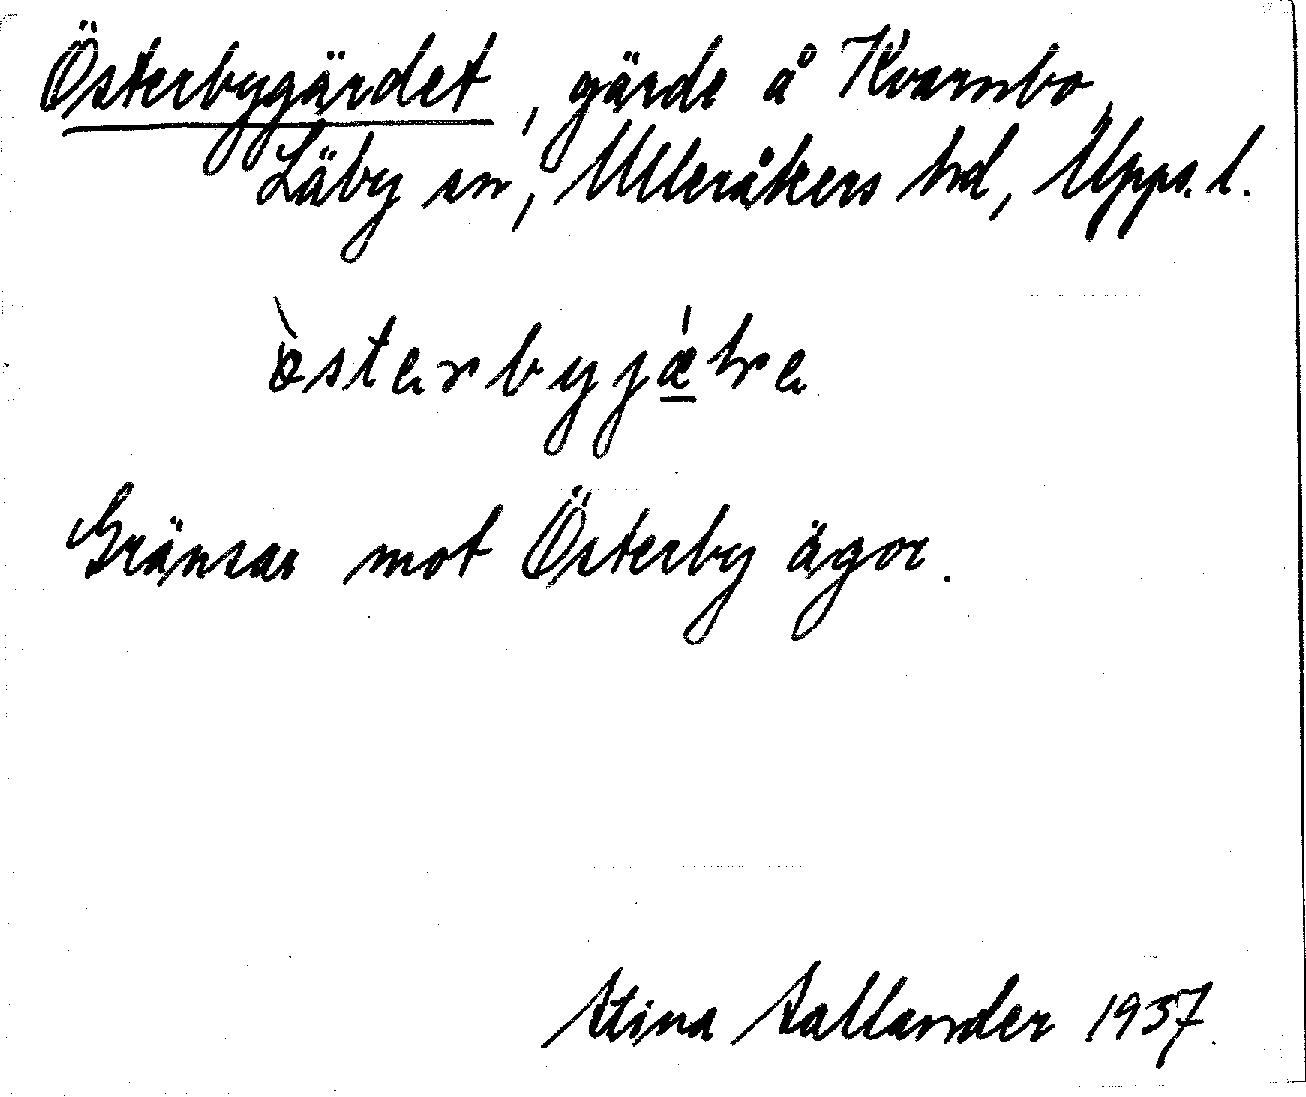 Österbygärdet, gärde å Kvarnbo,
Läby sn, Ulleråkers hd, Upps. l.
Gränsar mot Österby ägor.
Stina Sallander 1937.